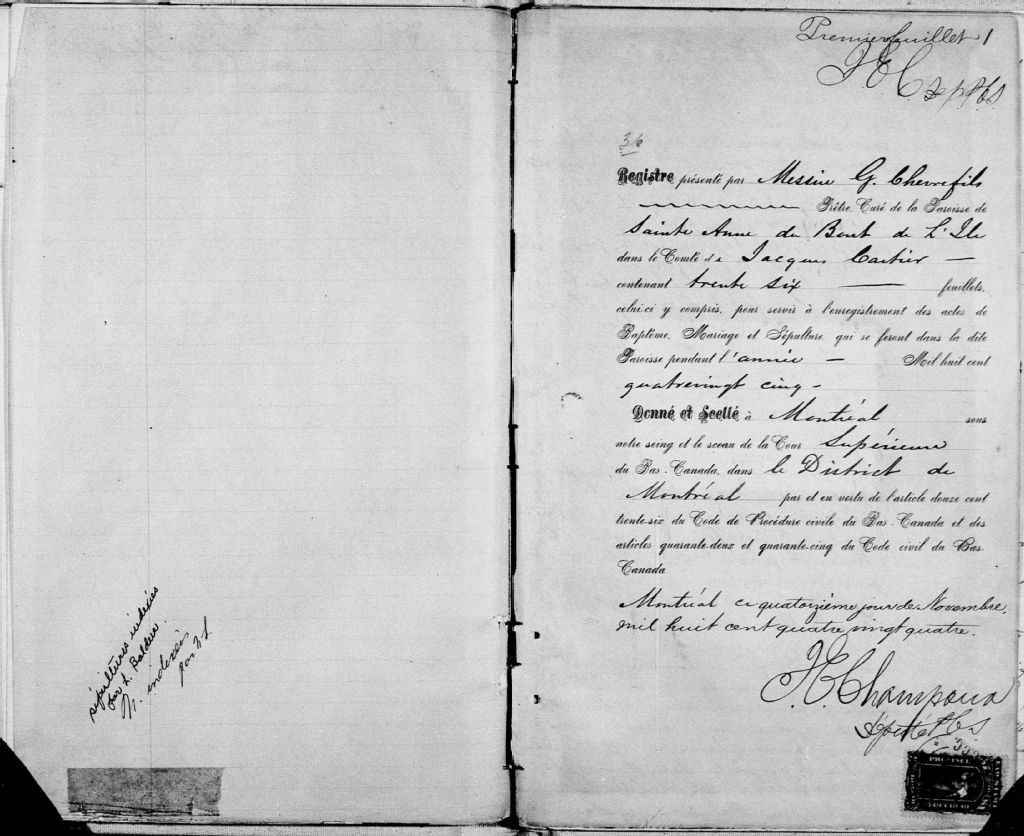 sépultures indexées
par L. Balduc
M. indexés
par
Premier feuillet 1
J E C Dep P C S
36
Registre présenté par Messire G. Chevrefils
Prêtre, Curé de la Paroisse de
Sainte Anne du Bout de L'Ile
dans le Comté de Jacques Cartier —
contenant trente six — feuillets,
celui-ci y compris, pour servir à l'enregistrement des actes de
Baptême, Mariage et Sépulture qui se feront dans la dite
Paroisse pendant l'année — Mil huit cent
quatrevingt cinq -
Donné et Scellé à Montréal sous
notre seing et le sceau de la Cour Supérieure
du Bas-Canada, dans le District de
Montréal par et en vertu de l'article douze cent
trente-six du Code de Procédure civile du Bas-Canada et des
articles quarante-deux et quarante-cinq du Code civil du Bas-
Canada
Montréal ce quatorzième jour de Novembre
mil huit cent quatre vingt quatre.
J. E. Champoux
Député P C S
PROVINCE